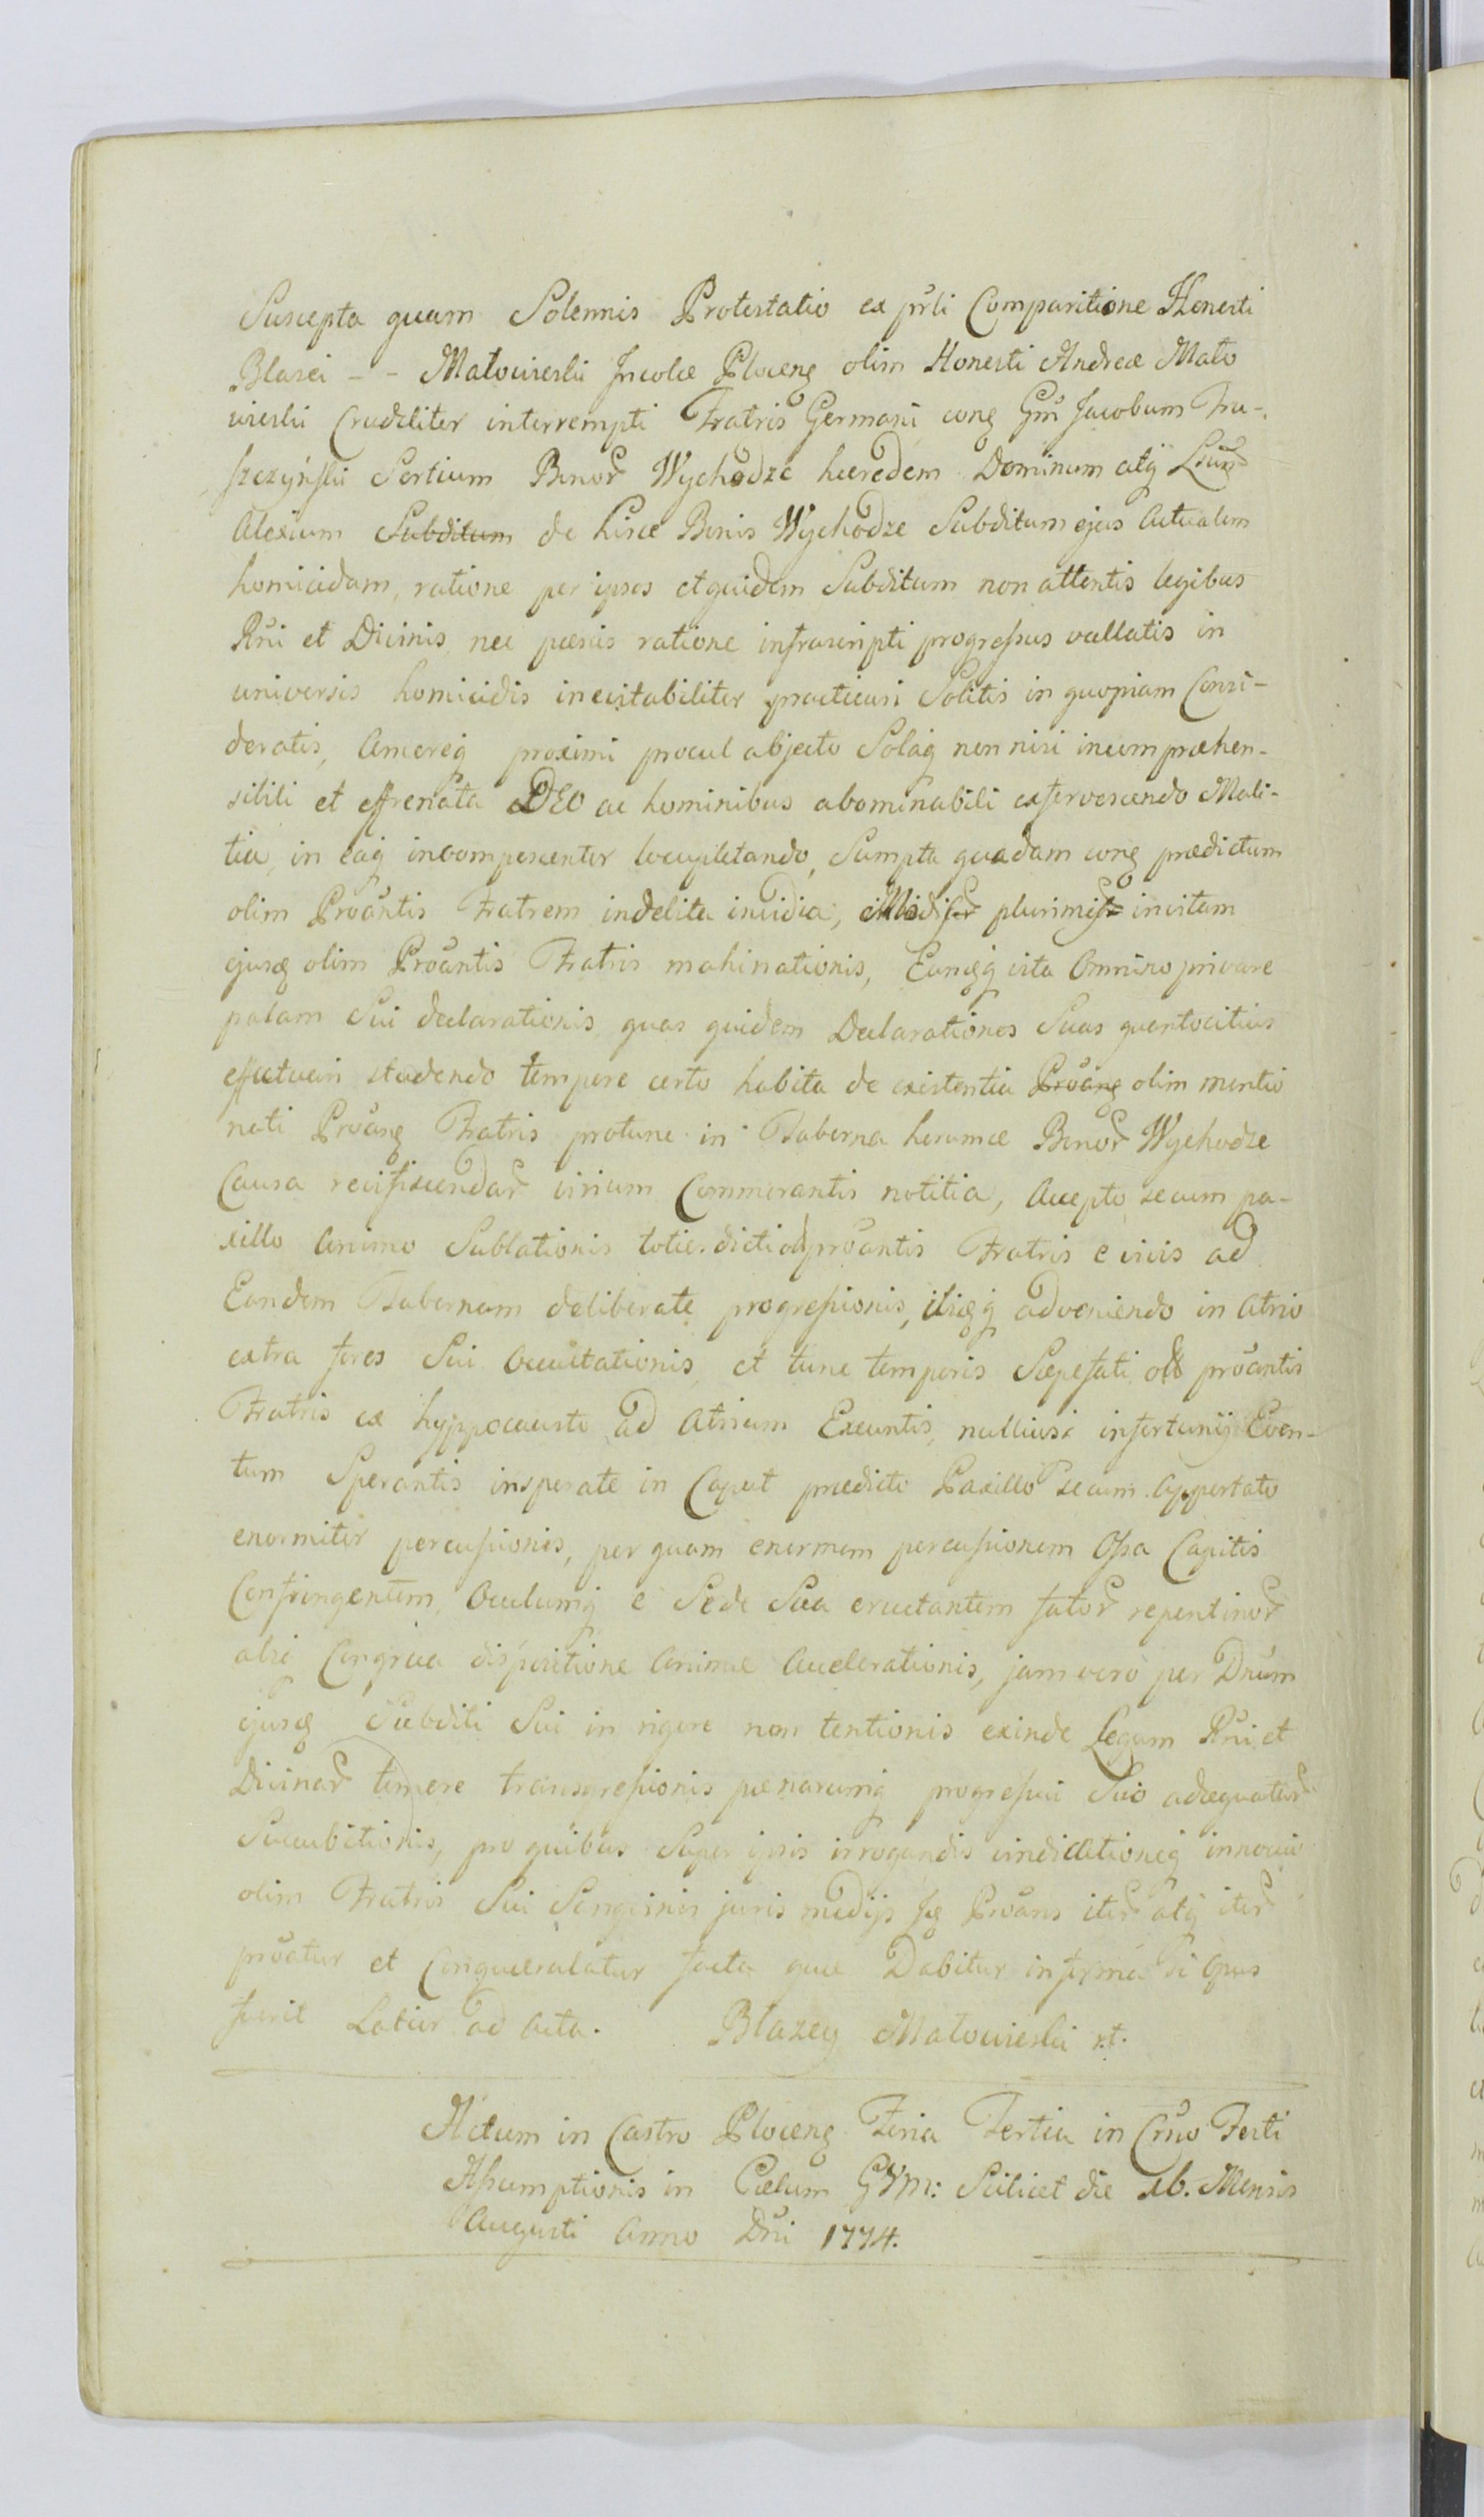 Suscepta quam Solennis Protestatio ex prli Comparitione Honesti
Blasei - - Matowieski Incolæ Ploceng olim Honesti Andreæ Mato
wieski Crudeliter interrempti Fratris Germani cong Gm Jacobum Tru-
szczyński Sortium Bonor Wychodze hæredem Dominum atq
Alexium Subditum de hisce Bonis Wychodze Subditum ejus Actualem
homicidam, ratione per ipsos et quidem Subditum non attentis legibus
Rni et Divinis, nec pænis ratione infrascripti progressus vallatis in
universis homicidis inevitabiliter practicari Solitis in quopiam Consi-
deratis, Amoreq proximi procul abjecto Solaq non nisi incompræhen-
sibili et effrenata DEO ac hominibus abominabili exfervescendo Mali-
tia, in eaq incompescenter locupletando, Sumpta quadam cong prædictum
olim Proantis Fratrem indebita invidia, plurimis in vitam
ejusq olim Proantis Fratris mahinationis, Eumq vita Omnino privare
palam Sui declarationis, quas quidem Declarationes Suas quantocitius
effectuari studendo tempore certo habita de existentia Proang olim mentio
nati Proang Fratris protunc in Taberna harumce Bonor Wychodze
Causa revisiscendar virium Commorantis notitia, Accepto secum pa-
xillo Animo Sublationis toties dicti ol proantis Fratris e vivis ad
Eandem Tabernam deliberate progressionis, ibiq adveniendo in Atrio
extra fores Sui Occultationis, et tunc temporis Sæpefati ol proantis
Fratris ex hyppocausto ad Atrium Exeuntis, nullius infortunij Even-
tum Sperantis insperate in Caput prædicto Paxillo secum Apportato
enormiter percussionis, per quam enormem percussionem Ossa Capitis
Confringentem, Oculumq e Sede Sua eructantem fator repentinor
absq Congrua dispositione Animæ Accelerationis, jam vero per Dnum
ejusq Subditi Sui in rigore non tentionis exinde Legum Rni et
Divinar temere transgressionis pænarumq progressui Suo adæquatar
Succubitionis, pro quibus Super ipsis irrogandis vindictationeq innocui
olim Fratris Sui Sangvinis juris medijs Proans iter atq iter
proatur et Conquerulatur facta quæ Dabitur in forma Si Opus
fuerit Latior ad Acta. Blazey Matowieski
Actum in Castro Ploceng Feria Tertia in Crno Festi
Assumptionis in Cælum GVM: Scilicet die 16. Mensis
Augusti Anno Dni 1774.